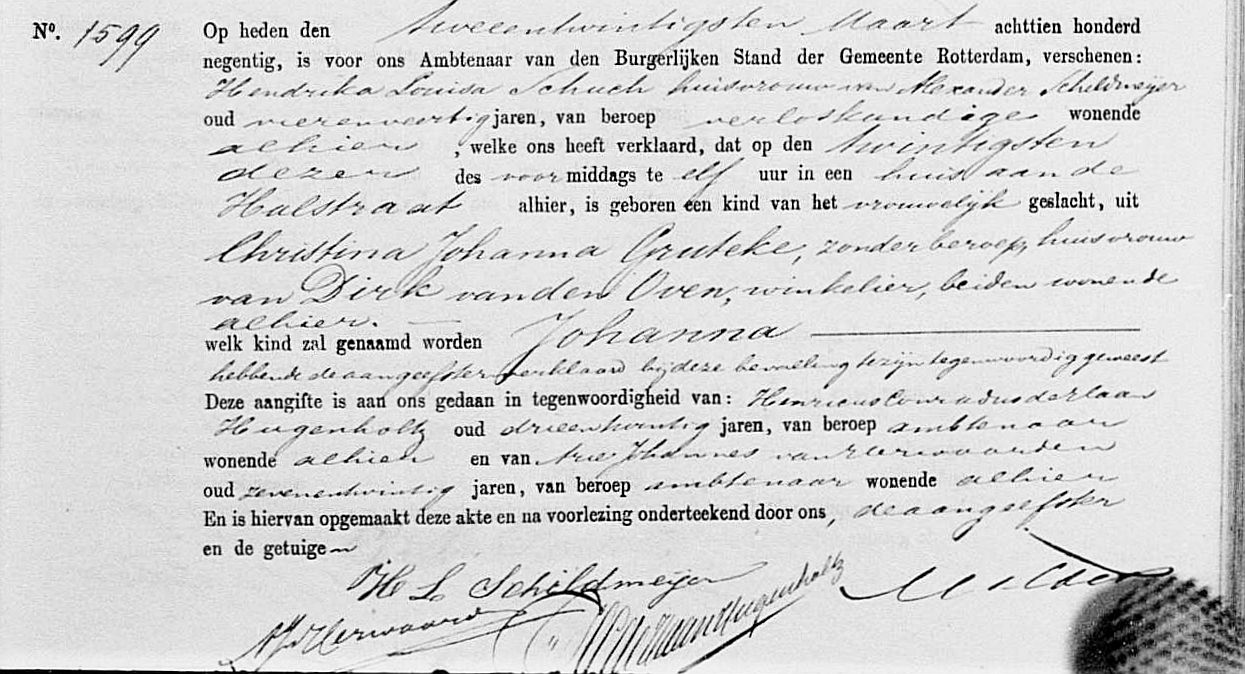 Nº. 1599 Op heden den tweeentwintigsten Maart achttien honderd
negentig, is voor ons Ambtenaar van den Burgerlijken Stand der Gemeente Rotterdam, verschenen:
Hendrika Louisa Schuch huisvrouw van Alexander Schildmeijer
oud vierenveertig jaren, van beroep verloskundige wonende
alhier, welke ons heeft verklaard, dat op den twintigsten
dezer des voormiddags te elf uur in een huis aan de
Halstraat alhier, is geboren een kind van het vrouwelijk geslacht, uit
Christina Johanna Gruteke, zonder beroep, huisvrouw
van Dirk van den Oven, winkelier, beiden wonende
alhier. —
welk kind zal genaamd worden Johanna —
hebbende de aangeefster verklaard bij deze bevalling te zijn tegenwoordig geweest
Deze aangifte is aan ons gedaan in tegenwoordigheid van: Henricus Conradus der Laan
Hugenholtz oud drieentwintig jaren, van beroep ambtenaar
wonende alhier en van Arie Johannes van Herwaarden
oud zevenentwintig jaren, van beroep ambtenaar wonende alhier
En is hiervan opgemaakt deze akte en na voorlezing onderteekend door ons, de aangeefster
en de getuigen
H L Schildmeijer
Hugenholtz